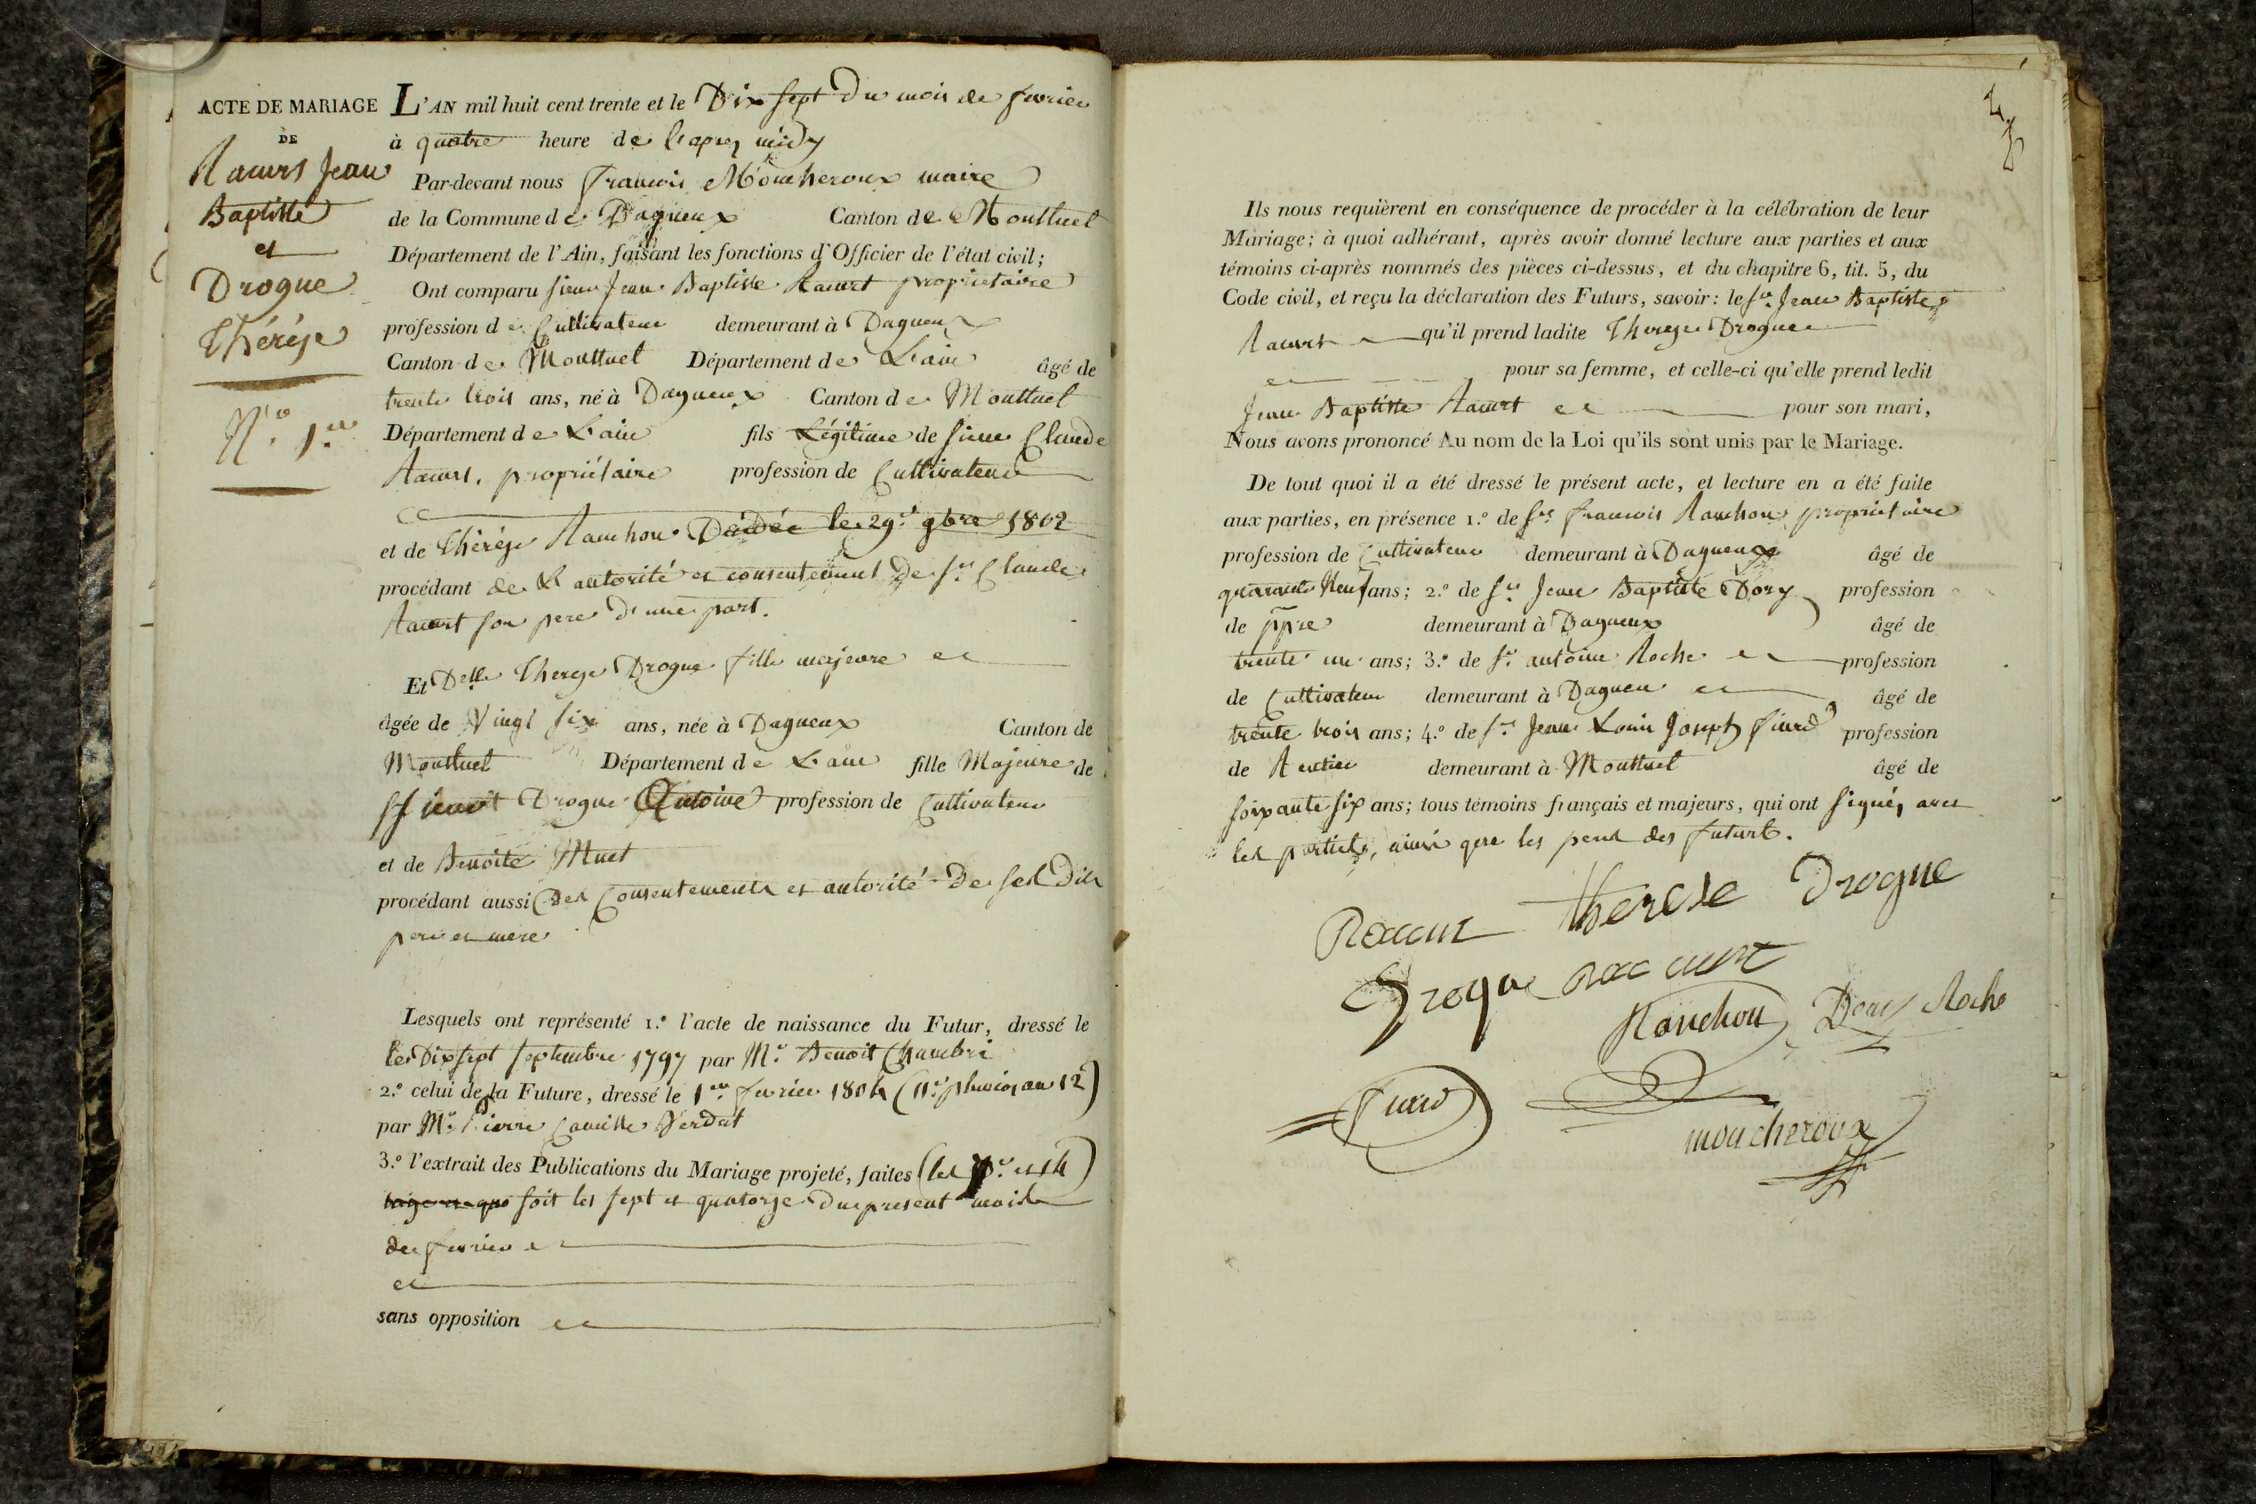 ACTE DE MARIAGE
DE
Racurt Jean
Baptiste
et
Drogue
Thérése
N.o 1.er
L'AN mil huit cent trente et le Dix sept Du mois de fevrier
à quatre heure de l'apres midy
Par-devant nous francois Moucheroux maire
de la Commune de Dagneux Canton de Montluel
Département de l'Ain, faisant les fonctions d'Officier de l'état civil;
Ont comparu sieur Jean Baptiste Racurt propriétaire
profession de Cultivateur demeurant à Dagneux
Canton de Montluel Département de L'ain âgé de
trente trois ans, né à Dagneux Canton de Montluel
Département de L'ain fils Légitime de sieur Claude
Racurt, propriétaire profession de Cultivateur
et de Thérése Rauchon Décédée le 29.e 9bre 1802
procédant de L'autorité et consentement de sr. Claude
Racurt son pere d'une part.
Et Delle Therese Drogue fille majeure
âgée de Vingt six ans, née à Dagneux Canton de
Montluel Département de L'ain fille Majeure de
Drogue Antoine profession de Cultivateur
et de Benoite Muet
procédant aussi Des Consentements et autorité De ses Dits
pere et mere
Lesquels ont représenté 1.o l'acte de naissance du Futur, dressé le
le Dix sept septembre 1797 par Mr. Benoit Chambre
2.o celui de la Future, dressé le 1er fevrier 1804 (11.e pluviose an 12)
par Mr. Pierre Camille Verdat
3.o l'extrait des Publications du Mariage projeté, faites (les 7.e et 14)
soit les sept et quatorze du present mois
de fevrier
sans opposition
Ils nous requièrent en conséquence de procéder à la célébration de leur
Mariage; à quoi adhérant, après avoir donné lecture aux parties et aux
témoins ci-après nommés des pièces ci-dessus, et du chapitre 6, tit. 5, du
Code civil, et reçu la déclaration des Futurs, savoir: le sr. Jean Baptiste
Racurt qu'il prend ladite Therese Drogue
pour sa femme, et celle-ci qu'elle prend ledit
Jean Baptiste Racurt pour son mari,
Nous avons prononcé Au nom de la Loi qu'ils sont unis par le Mariage.
De tout quoi il a été dressé le présent acte, et lecture en a été faite
aux parties, en présence 1.o de sr. francois Rauchon propriétaire
profession de Cultivateur demeurant à Dagneux âgé de
quarante Neuf ans; 2.o de sr. Jean Baptiste Dory profession
de ppre demeurant à Dagneux âgé de
trente un ans; 3.o de sr. antoine Roche profession
de Cultivateur demeurant à Dagneu âgé de
trente trois ans; 4.o de sr. Jean Louis Joseph profession
de Rentier demeurant à Montluel âgé de
soixante six ans; tous témoins français et majeurs, qui ont signés avec
les parties, ainsi que les peres des futurs.
Racurt therese Drogue
Drogue racurt
Rauchon Dory Roche
moucheroux